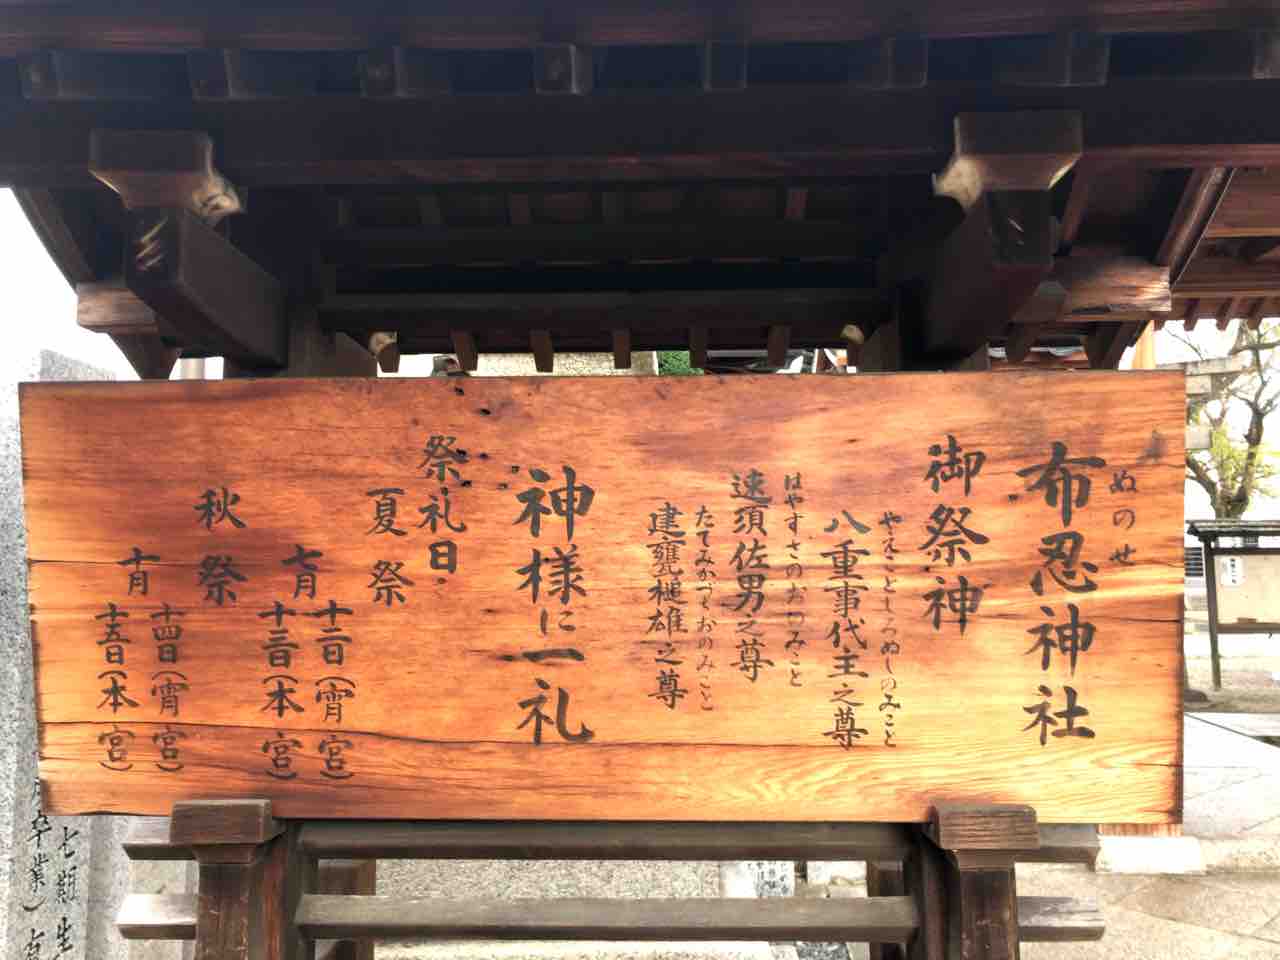 ぬのせ
布忍神社
御祭神
やえことしろぬしのみこと
八重事代主之尊
はやすさのおのみこと
速須佐男之尊
たてみかづちおのみこと
建甕槌雄之尊
神様に一礼
祭礼日
夏祭
七月
十二日(宵宮)
十三日(本宮)
秋祭
十月
十四日(宵宮)
十五日(本宮)
七期生
卒業)